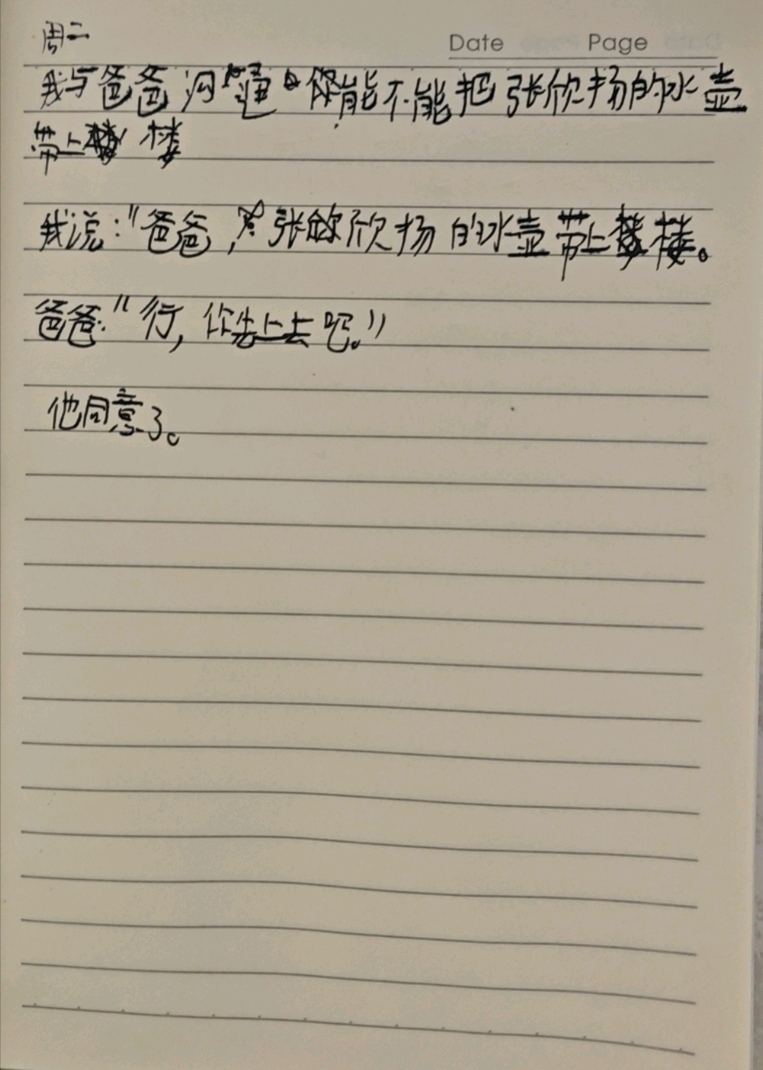 周二
Date Page
我与爸爸沟通 你能不能把张欣扬的水壶
带上楼
我说:"爸爸, 张欣扬的水壶带上楼。
爸爸:"行,你先上去吧。"
他同意了。